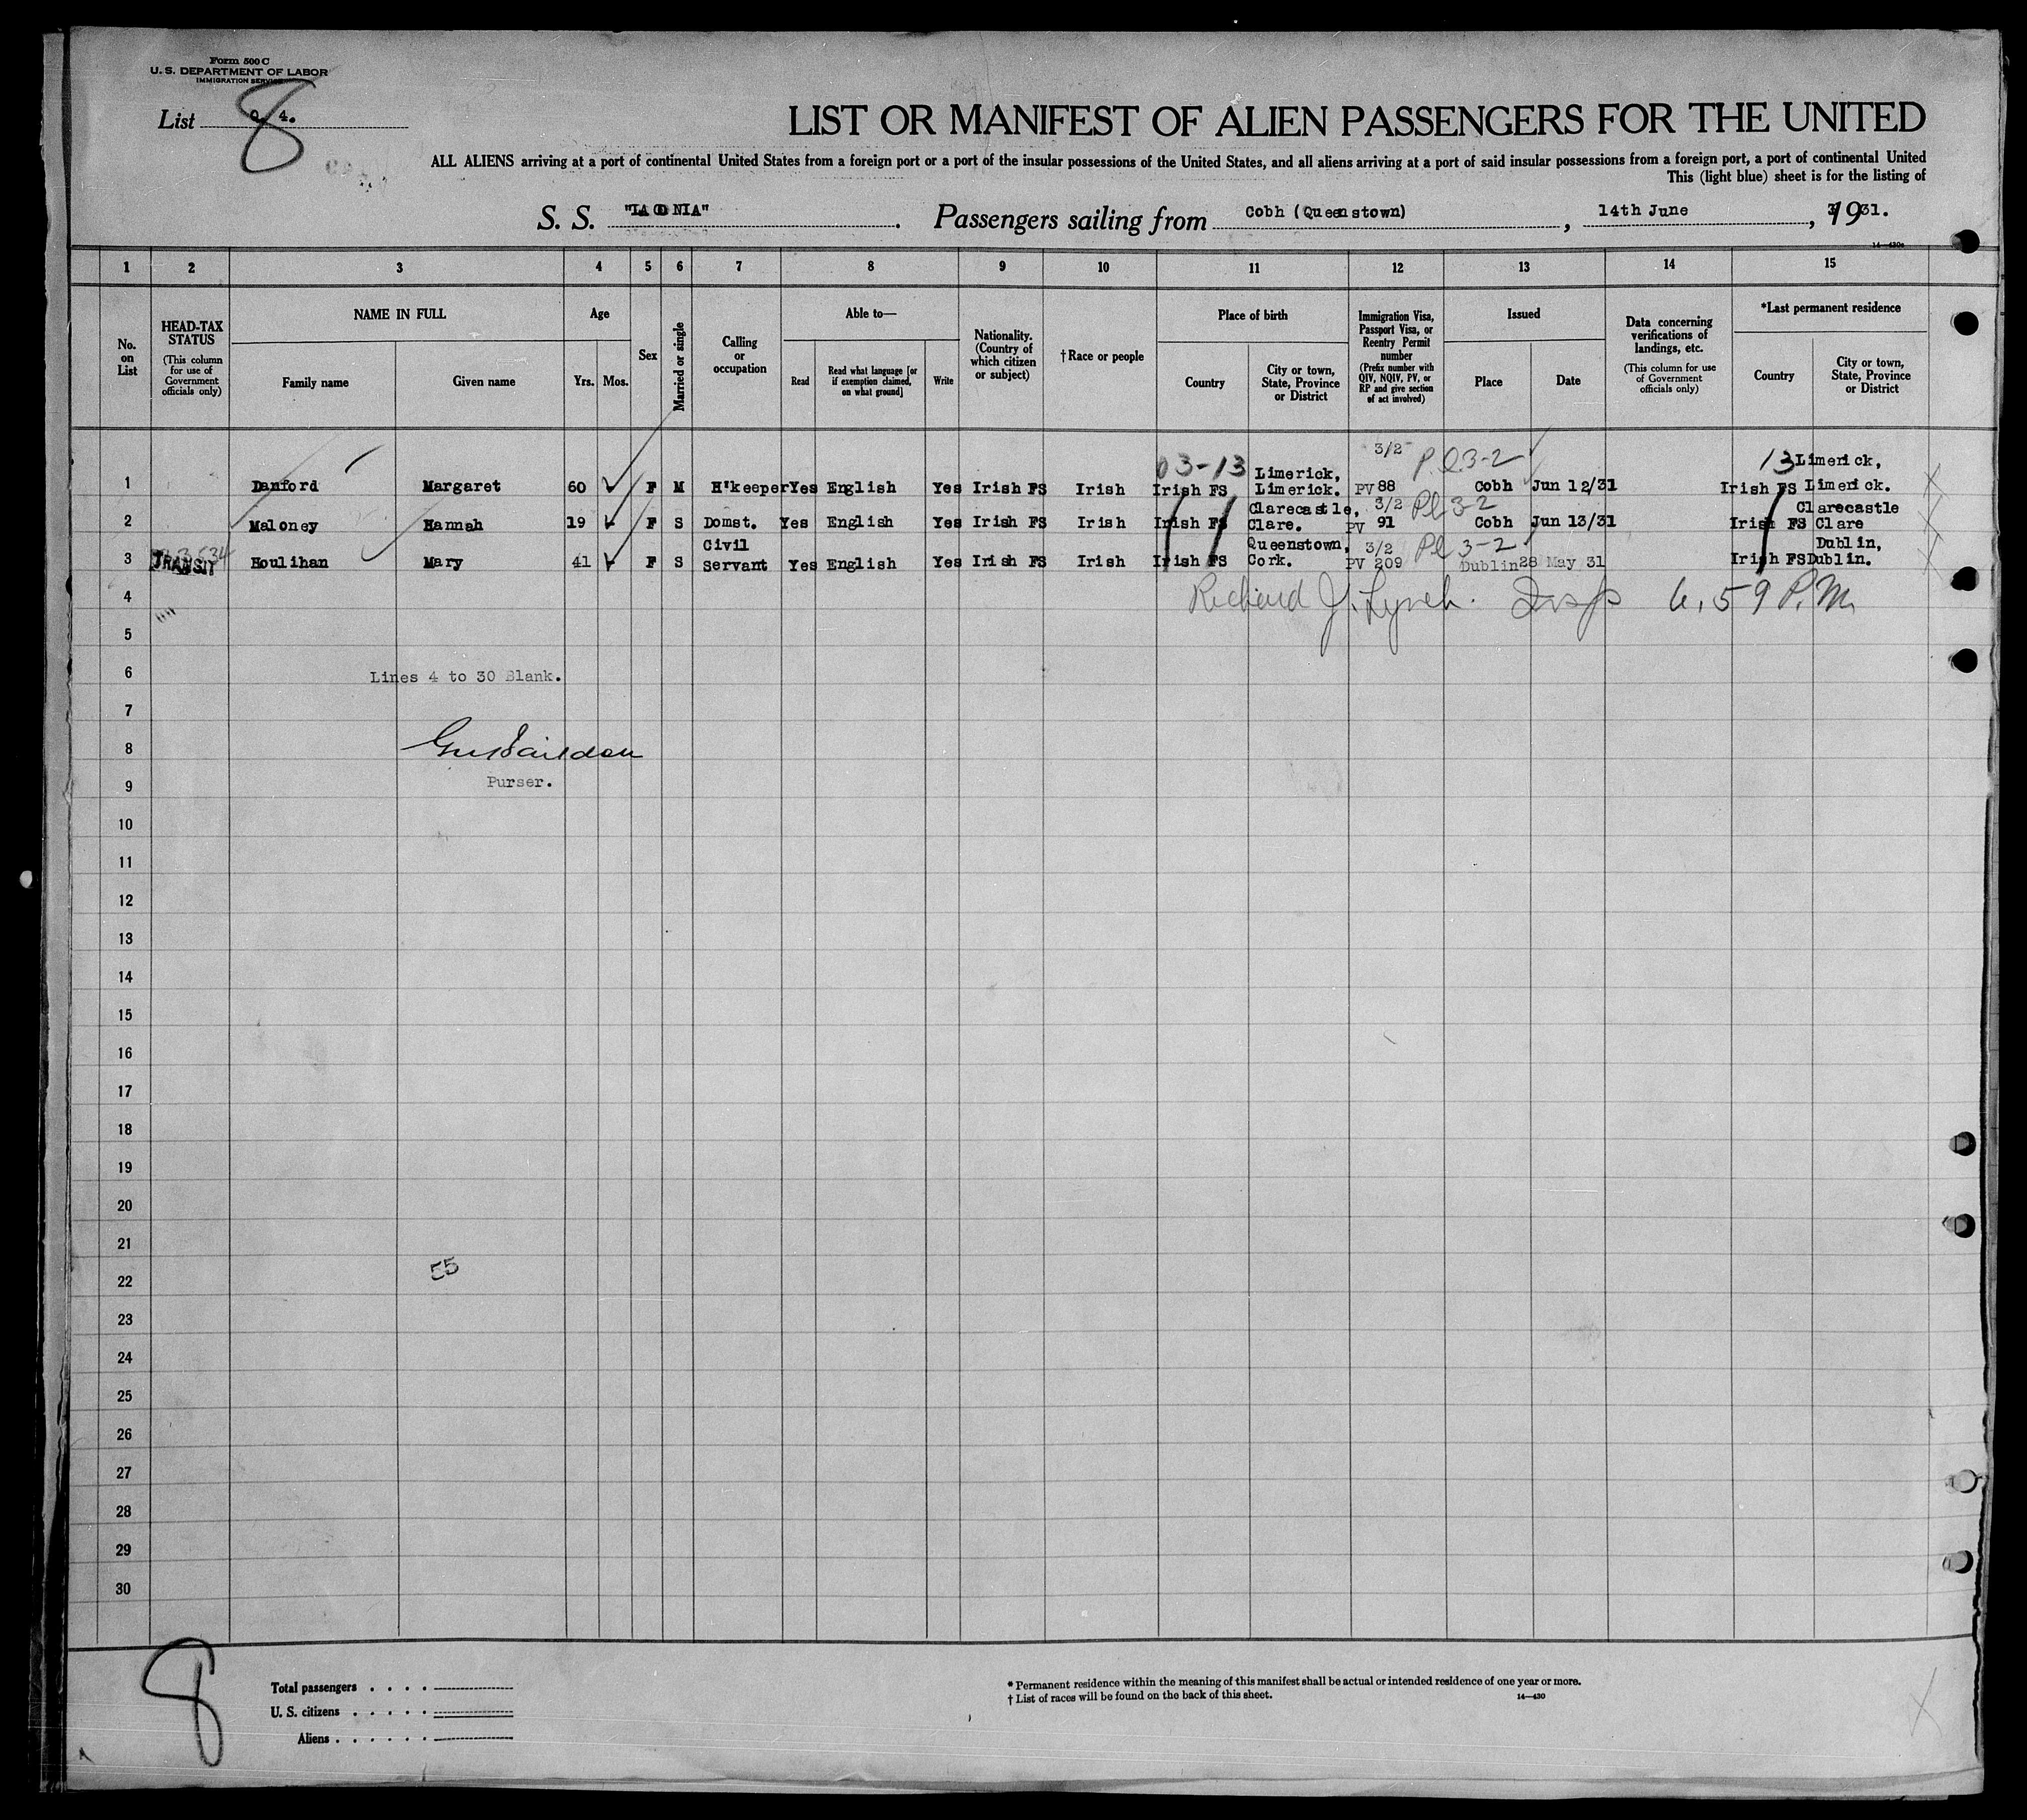 Form 500 C
U. S. DEPARTMENT OF LABOR
IMMIGRATION SERVICE
List 8 4.
LIST OR MANIFEST OF ALIEN PASSENGERS FOR THE UNITED
ALL ALIENS arriving at a port of continental United States from a foreign port or a port of the insular possessions of the United States, and all aliens arriving at a port of said insular possessions from a foreign port, a port of continental United
This (light blue) sheet is for the listing of
S. S. Passengers sailing from Cobh (Queenstown), 14th June, 1931.
14—430a
1 2 3 4 5 6 7 8 9 10 11 12 13 14 15
No. on List
HEAD-TAX STATUS
(This column for use of Government officials only)
NAME IN FULL
Family name
Given name
Age
Yrs. Mos.
Sex
Married or single
Calling or occupation
Able to—
Read
Read what language [or if exemption claimed, on what ground]
Write
Nationality. (Country of which citizen or subject)
†Race or people
Place of birth
Country
City or town, State, Province or District
Immigration Visa, Passport Visa, or Reentry Permit number
(Prefix number with QIV, NQIV, PV, or RP and give section of act involved)
Issued
Place
Date
Data concerning verifications of landings, etc.
(This column for use of Government officials only)
*Last permanent residence
Country
City or town, State, Province or District
03-13 3/2 P.l.3-2 13 Limerick,
Limerick,
1 Danford Margaret 60 F M H'keeper Yes English Yes Irish FS Irish Irish FS Limerick. PV 88 Cobh Jun 12/31 Irish FS Limerick.
Clarecastle, 3/2 Pl 3-2 Clarecastle
2 Maloney Hannah 19 F S Domst. Yes English Yes Irish FS Irish Irish FS Clare. PV 91 Cobh Jun 13/31 Irish FS Clare
Civil Queenstown, 3/2 Pl 3-2 Dublin,
3 TRANSIT Houlihan Mary 41 F S Servant Yes English Yes Irish FS Irish Irish FS Cork. PV 209 Dublin 28 May 31 Irish FS Dublin.
4 Richard J. Lynch. Insp 6.59 P.M.
5
6 Lines 4 to 30 Blank.
7
8
9 Purser.
10
11
12
13
14
15
16
17
18
19
20
21
55
22
23
24
25
26
27
28
29
30
8
Total passengers
U. S. citizens
Aliens
* Permanent residence within the meaning of this manifest shall be actual or intended residence of one year or more.
† List of races will be found on the back of this sheet.
14—430